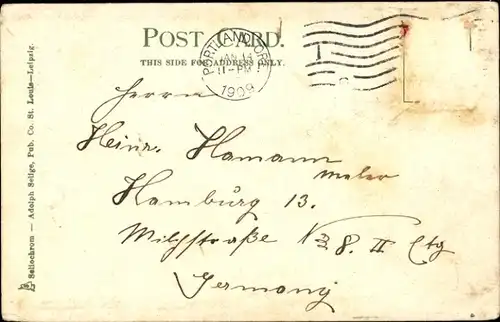 POST CARD.
THIS SIDE FOR ADDRESS ONLY.
PORTLAND, OR
JAN 14
11-PM
1909
Herrn
Heinr. Hamann
Maler
Hamburg 13.
Milchstraße 28. II Etg
Germany
Sellochrom — Adolph Selige, Pub. Co. St. Louis—Leipzig.